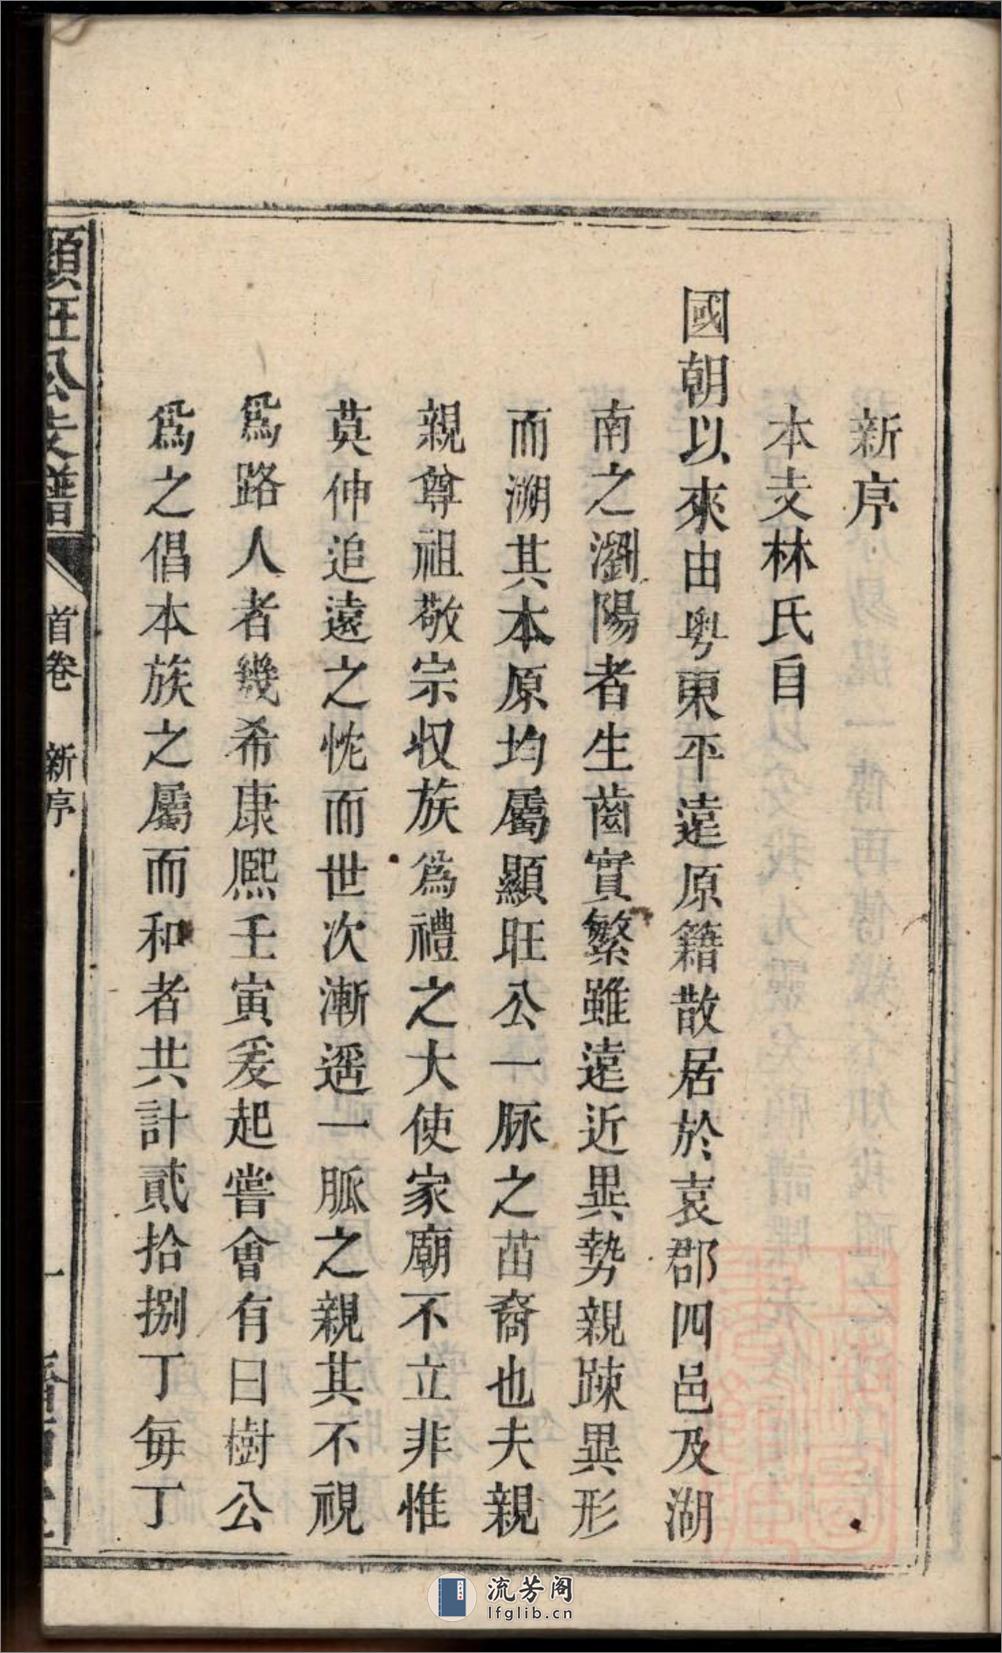 新序
本支林氏自
國朝以來由粤東平遠原籍散居於袁郡四邑及湖
南之瀏陽者生齒實繁雖遠近異勢親踈異形
而溯其本原均屬顯旺公一脉之苗裔也夫親
親尊祖敬宗収族爲禮之大使家廟不立非惟
莫伸追遠之忱而世次漸遥一脈之親其不視
爲路人者幾希康熙壬寅爰起嘗會有曰樹公
爲之倡本族之屬而和者共計貳拾捌丁每丁
顯旺公支譜 首卷 新序 一
流芳阁
lfglib.cn